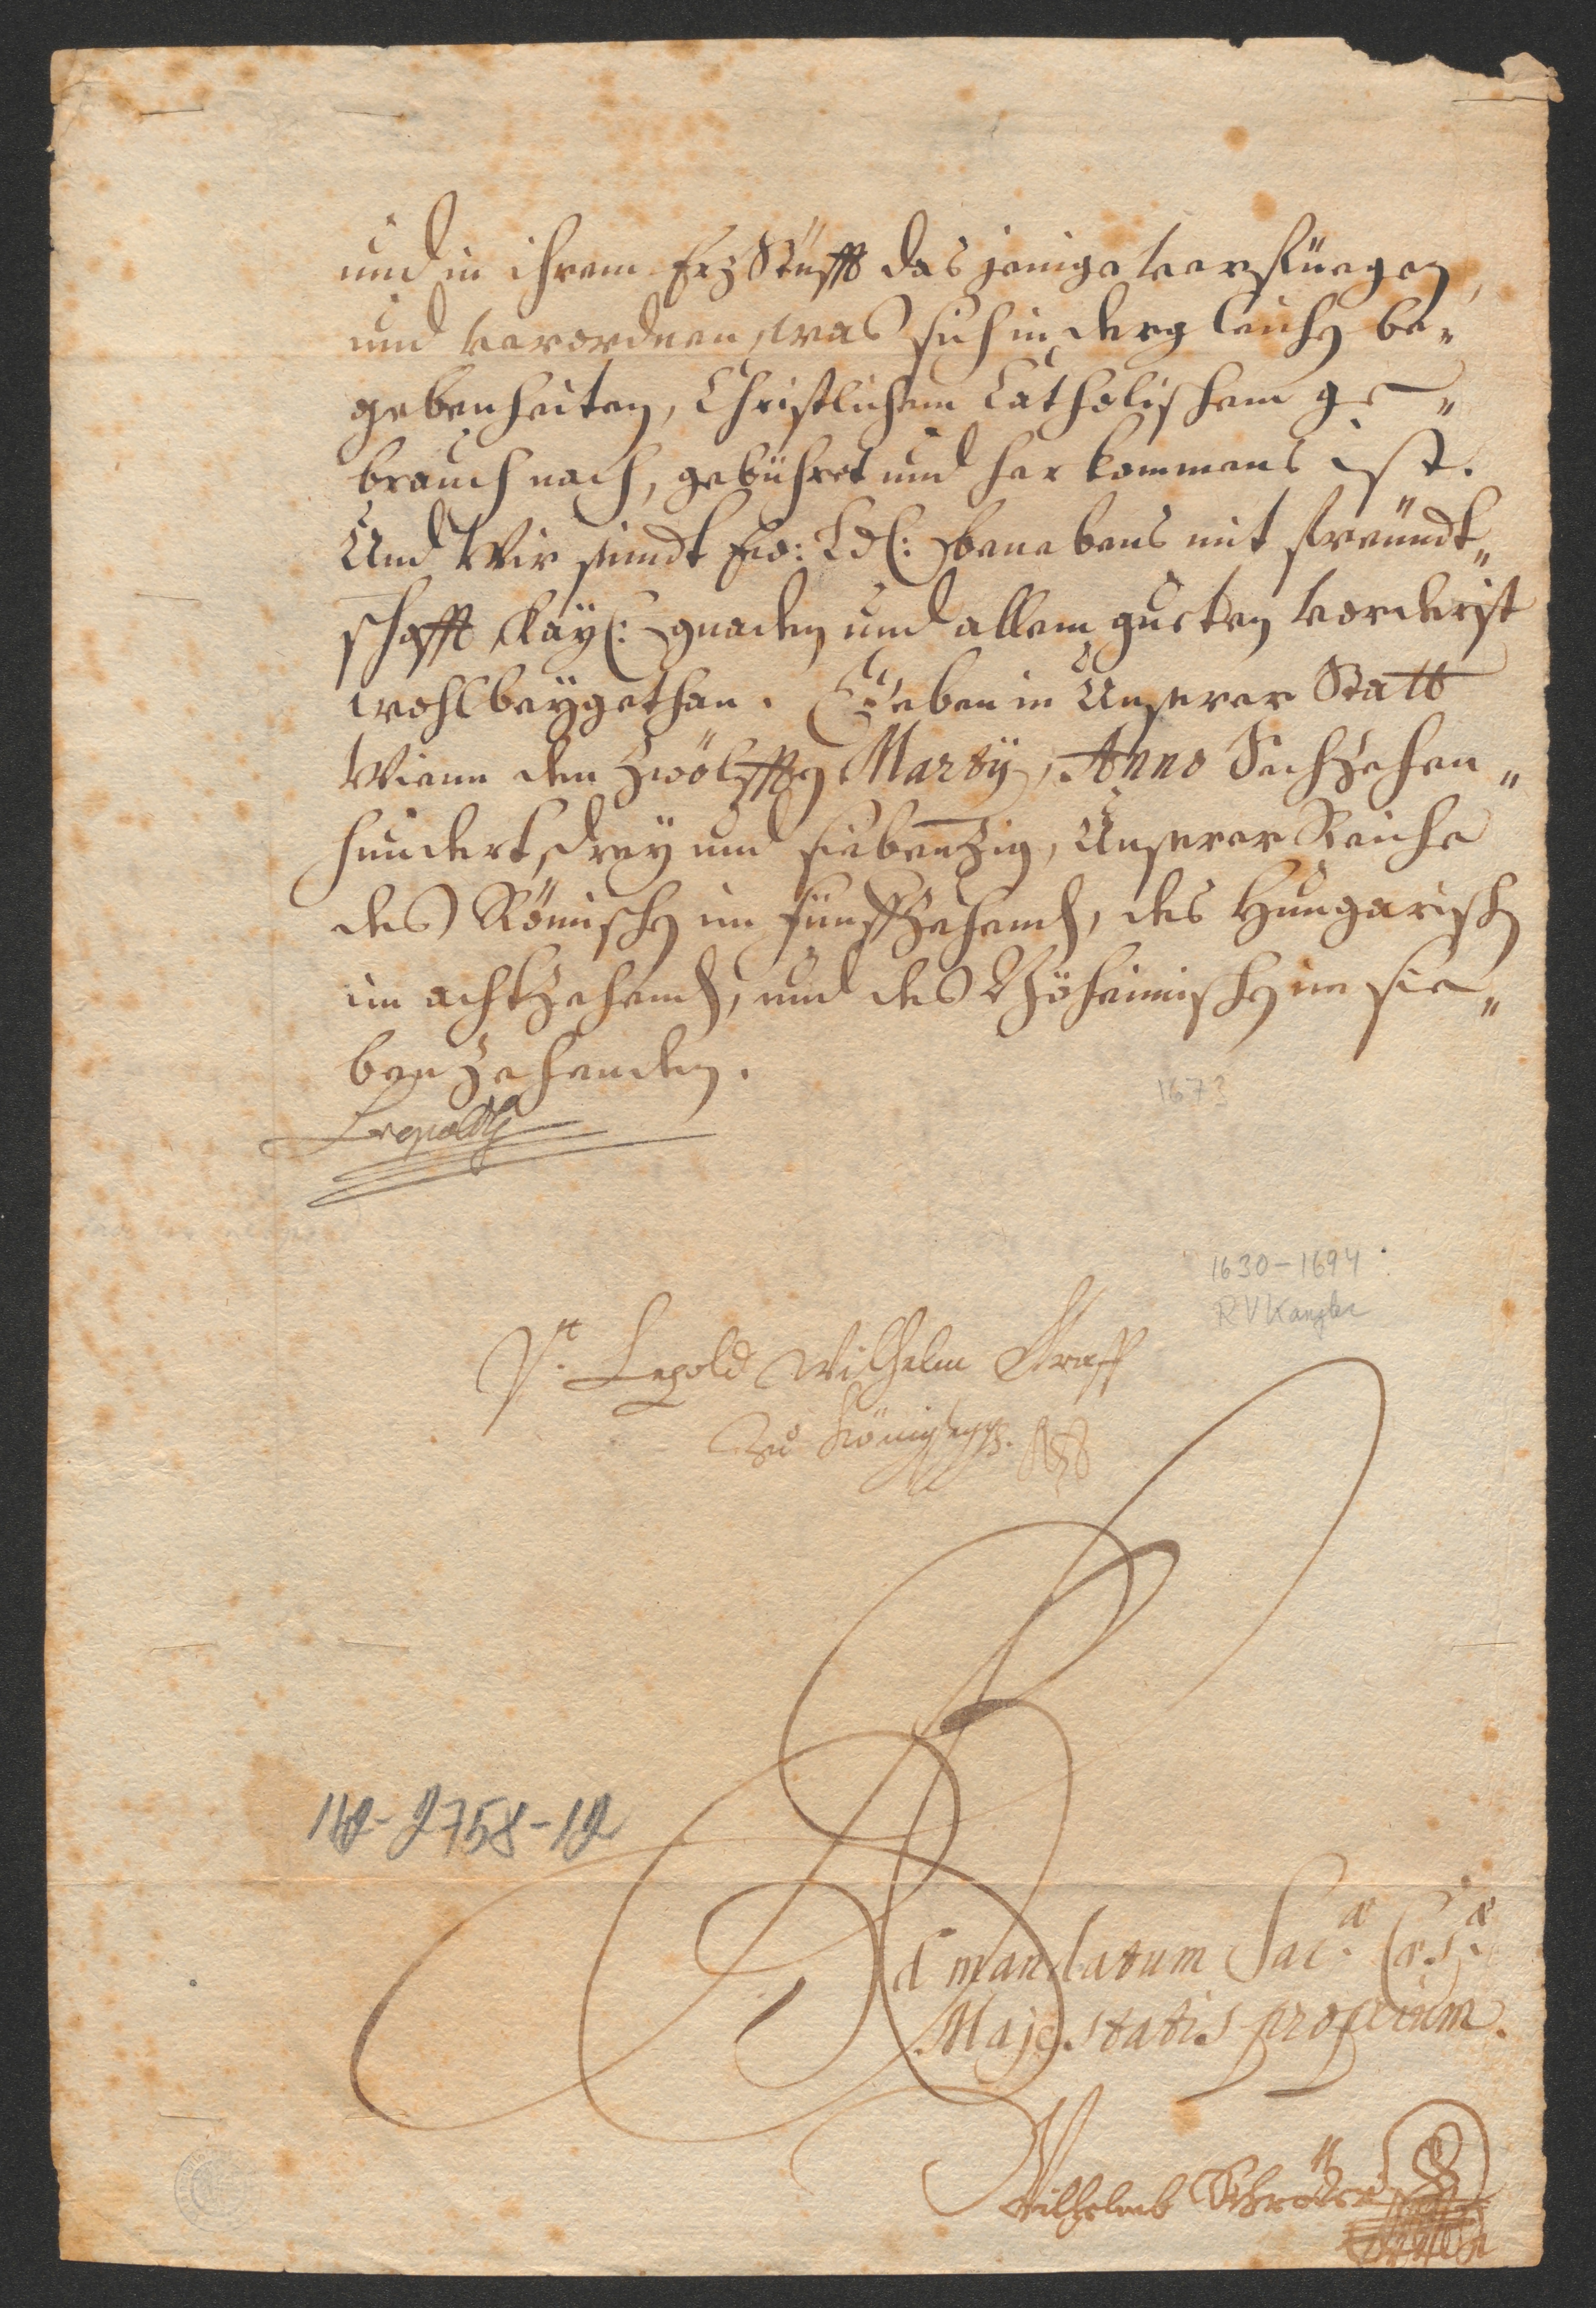 und in ihrem Erz Stüfft das jenige verfüegen,
und verordnen, was sich in dergleichen be„
gebenheiten, Christlichem Catholischem ge„
brauch nach, gebühret und herkommens ist.
Und Wir seindt Ew: Ld: benebens mit freündt„
schafft Kayl: gnaden und allem guetten vorderist
wohlbeygethan. Geben in Unserer Statt
Wienn den Zwölfften Martÿ, Anno Sechzehen„
hundert, drey und siebenzig, Unserer Reiche
des Römischen im fünffzehend, des Hungarischen
im achtzehend, und des Böheimischen im sie„
benzehenden.
1673
Leopoldt
1630-1694.
RVKanzler
Vt. Lepold Wilhelm Graff
zu Königsegg.
112-2758-12
Ad mandatum Sac.ae Caes.ae
Majestatis proprium.
Wilhelmb Schröder